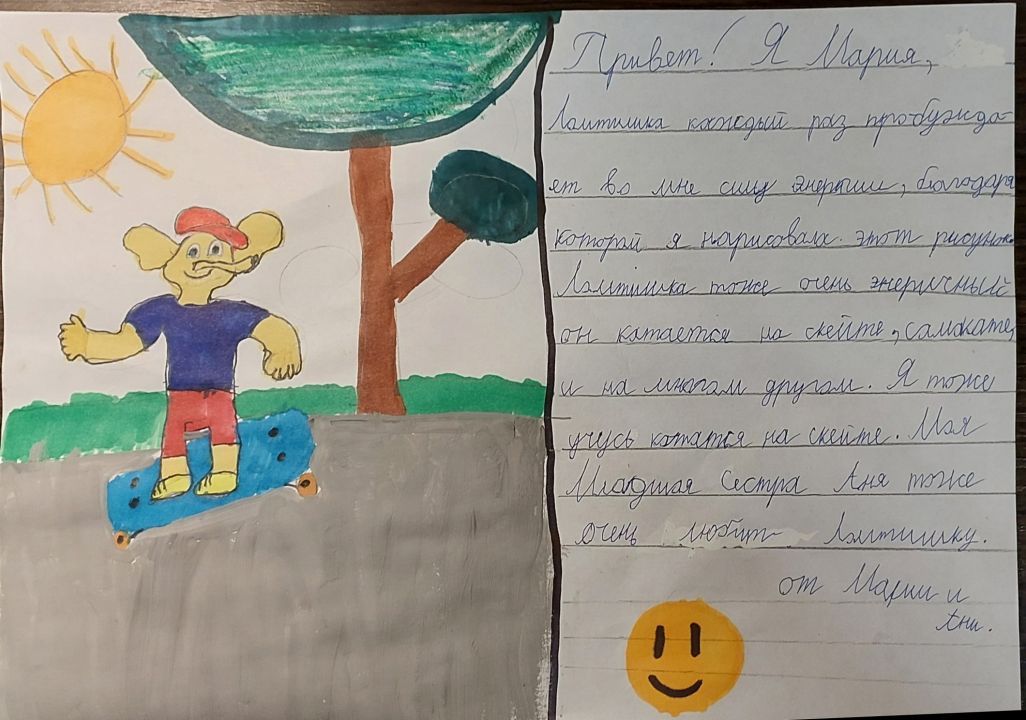 Привет! Я Мария,
Лантишка каждый раз пробужда-
ет во мне силу энергии, благодаря
которой я нарисовала этот рисунок
Лантишка тоже очень энеричный
он катается на скейте, самокате,
и на многом другом. Я тоже
учусь кататся на скейте. Моя
Младшая Сестра Аня тоже
очень любит Лантишку.
от Марии и
Ани.